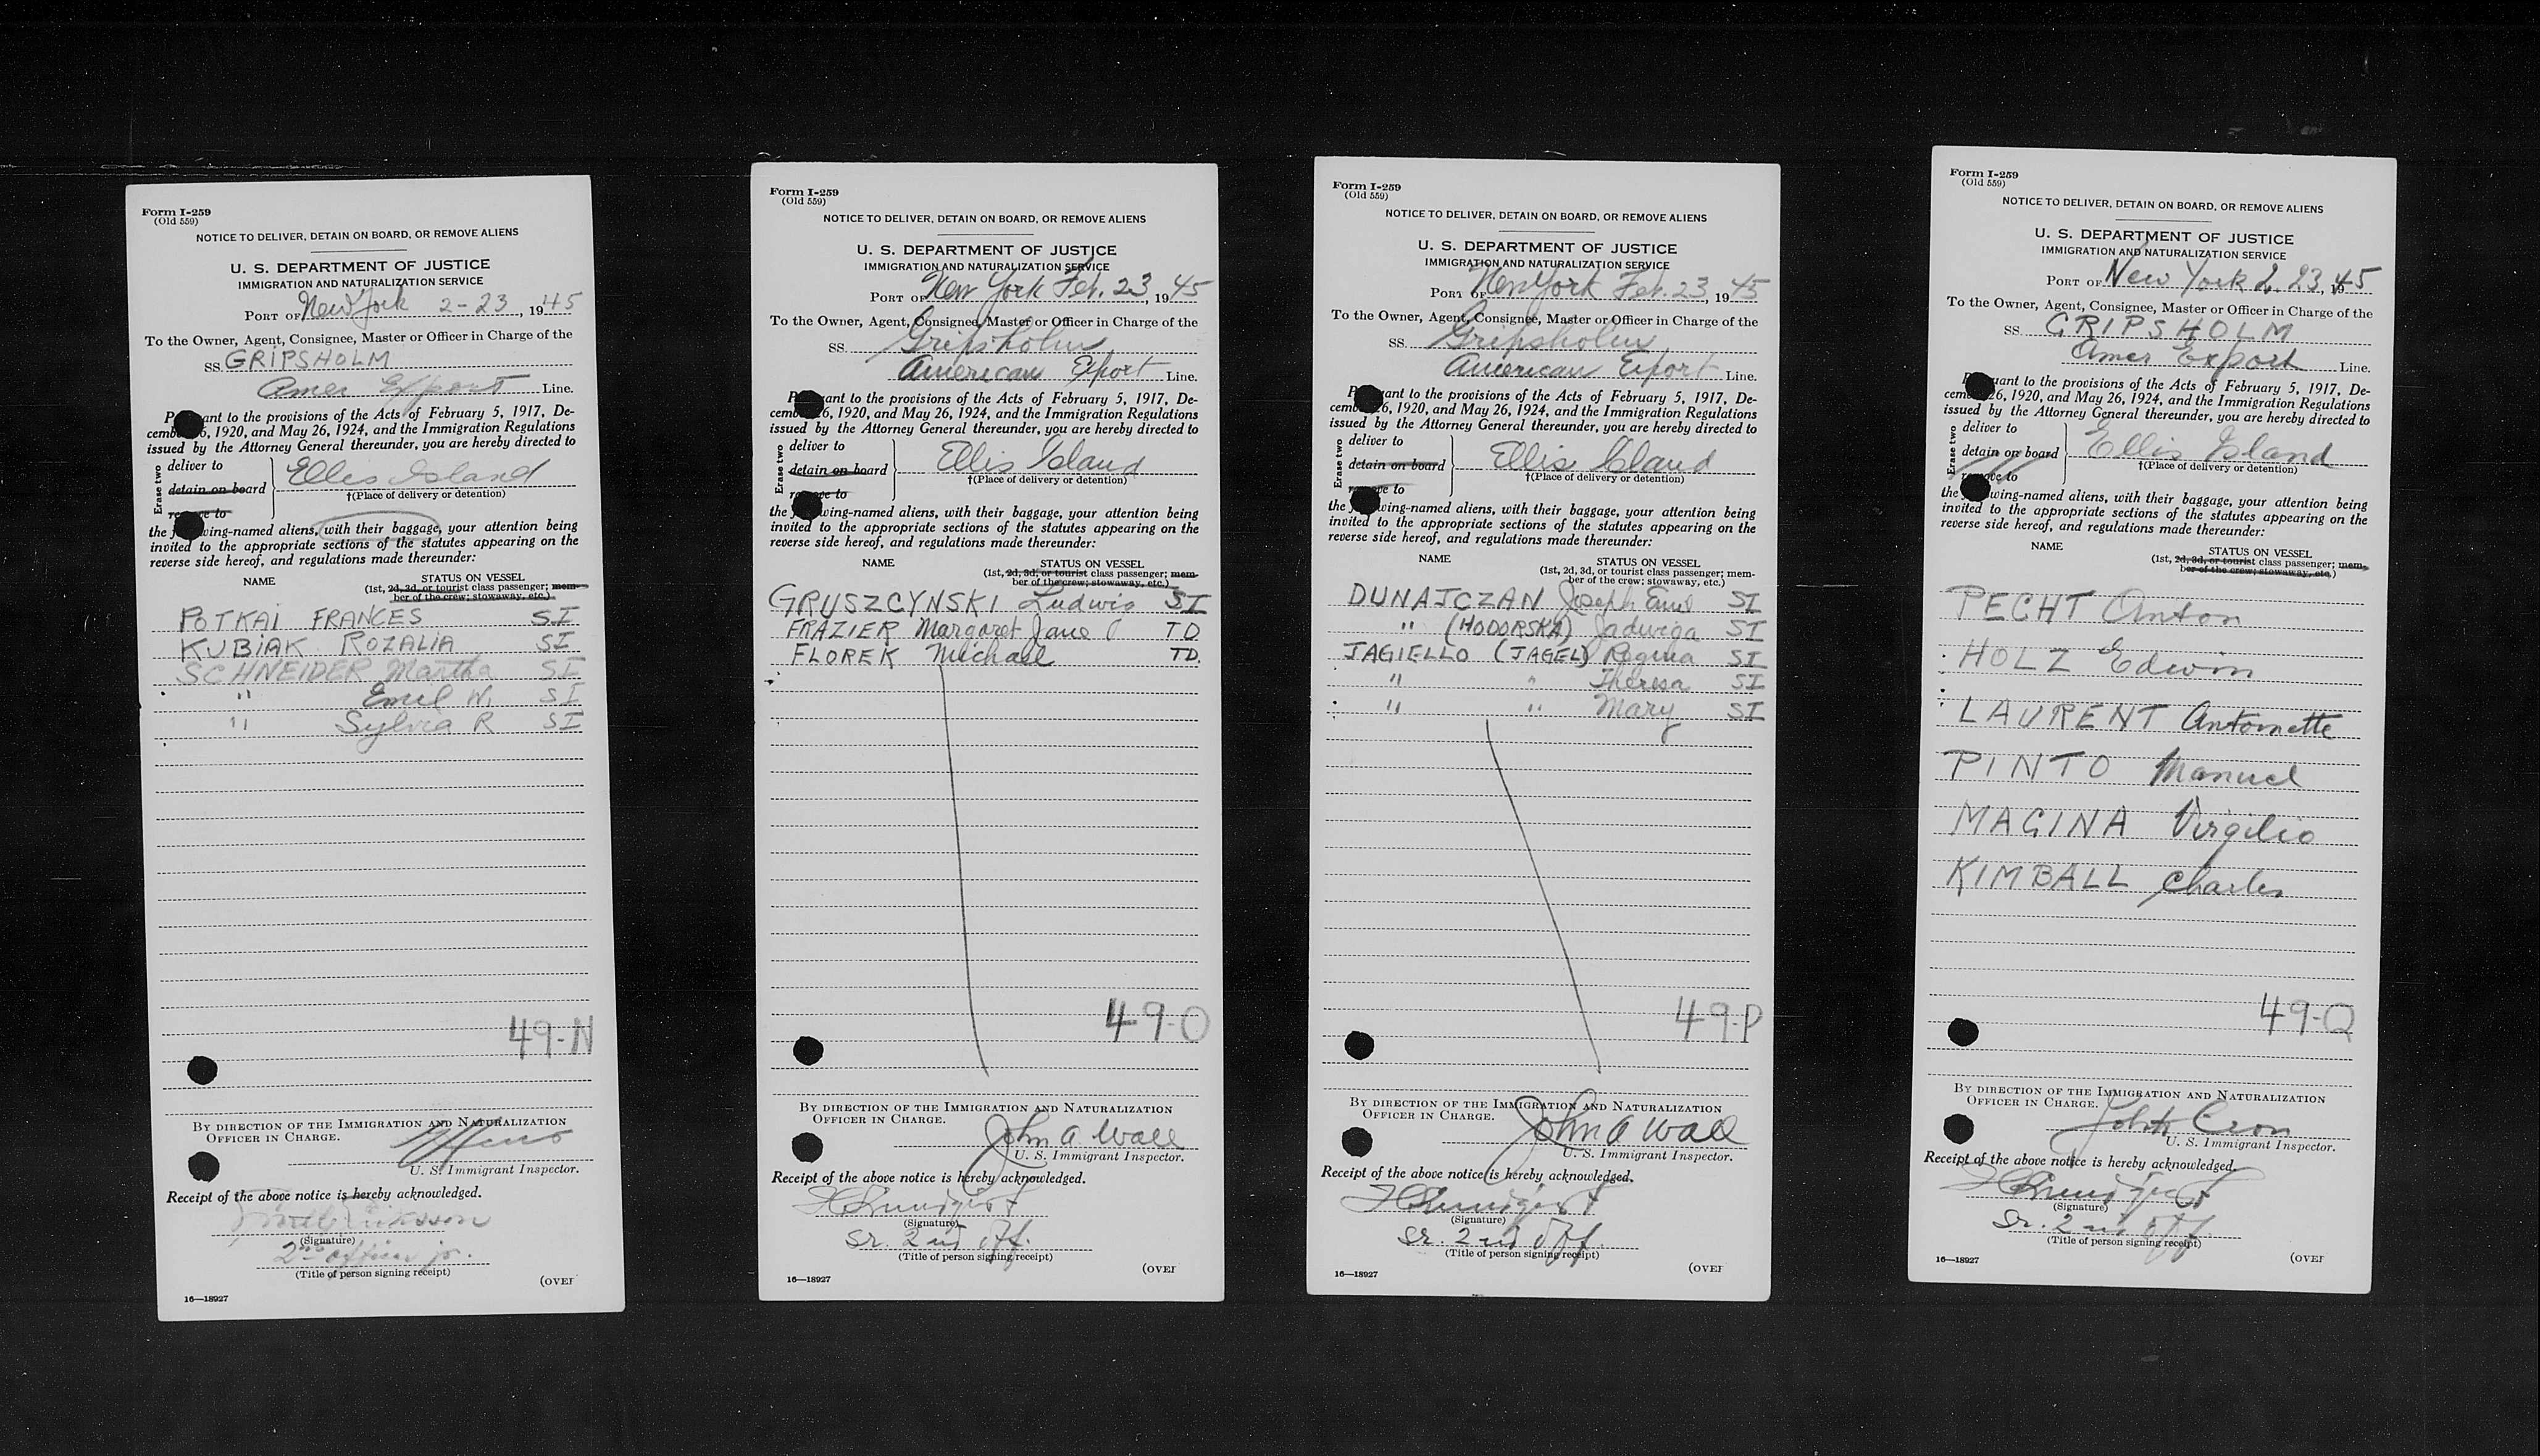 Form I-259
(Old 559)
NOTICE TO DELIVER, DETAIN ON BOARD, OR REMOVE ALIENS
U. S. DEPARTMENT OF JUSTICE
IMMIGRATION AND NATURALIZATION SERVICE
PORT OF New York 2-23, 1945
To the Owner, Agent, Consignee, Master or Officer in Charge of the
SS. GRIPSHOLM
Amer Export Line.
ant to the provisions of the Acts of February 5, 1917, De-
cem 6, 1920, and May 26, 1924, and the Immigration Regulations
issued by the Attorney General thereunder, you are hereby directed to
Erase two
deliver to
detain on board
to
Ellis Island
†(Place of delivery or detention)
the wing-named aliens, with their baggage, your attention being
invited to the appropriate sections of the statutes appearing on the
reverse side hereof, and regulations made thereunder:
NAME
STATUS ON VESSEL
(1st, 2d, 3d, or tourist class passenger; mem-
ber of the crew; stowaway, etc.)
POTKAI FRANCES SI
KUBIAK ROZALIA SI
SCHNEIDER Martha SI
" Emil W. SI
" Sylvia R SI
49-N
BY DIRECTION OF THE IMMIGRATION AND NATURALIZATION
OFFICER IN CHARGE.
U. S. Immigrant Inspector.
Receipt of the above notice is hereby acknowledged.
(Signature)
2nd officer jr.
(Title of person signing receipt)
(OVER
16—18927
Form I-259
(Old 559)
NOTICE TO DELIVER, DETAIN ON BOARD, OR REMOVE ALIENS
U. S. DEPARTMENT OF JUSTICE
IMMIGRATION AND NATURALIZATION SERVICE
PORT OF New York Feb. 23, 1945
To the Owner, Agent, Consignee, Master or Officer in Charge of the
SS. Gripsholm
American Export Line.
ant to the provisions of the Acts of February 5, 1917, De-
cem 6, 1920, and May 26, 1924, and the Immigration Regulations
issued by the Attorney General thereunder, you are hereby directed to
Erase two
deliver to
detain on board
to
Ellis Island
†(Place of delivery or detention)
the wing-named aliens, with their baggage, your attention being
invited to the appropriate sections of the statutes appearing on the
reverse side hereof, and regulations made thereunder:
NAME
STATUS ON VESSEL
(1st, 2d, 3d, or tourist class passenger; mem-
ber of the crew; stowaway, etc.)
GRUSZCYNSKI Ludwig SI
FRAZIER Margaret Jane TD
FLOREK Michael TD.
49-O
BY DIRECTION OF THE IMMIGRATION AND NATURALIZATION
OFFICER IN CHARGE.
John A Wall
U. S. Immigrant Inspector.
Receipt of the above notice is hereby acknowledged.
(Signature)
Sr. 2nd Off.
(Title of person signing receipt)
(OVER
16—18927
Form I-259
(Old 559)
NOTICE TO DELIVER, DETAIN ON BOARD, OR REMOVE ALIENS
U. S. DEPARTMENT OF JUSTICE
IMMIGRATION AND NATURALIZATION SERVICE
PORT OF New York Feb. 23, 1945
To the Owner, Agent, Consignee, Master or Officer in Charge of the
SS. Gripsholm
American Export Line.
ant to the provisions of the Acts of February 5, 1917, De-
cem 6, 1920, and May 26, 1924, and the Immigration Regulations
issued by the Attorney General thereunder, you are hereby directed to
Erase two
deliver to
detain on board
to
Ellis Island
†(Place of delivery or detention)
the wing-named aliens, with their baggage, your attention being
invited to the appropriate sections of the statutes appearing on the
reverse side hereof, and regulations made thereunder:
NAME
STATUS ON VESSEL
(1st, 2d, 3d, or tourist class passenger; mem-
ber of the crew; stowaway, etc.)
DUNAJCZAN Joseph Emil SI
" (HODORSKA) Jadwiga SI
JAGIELLO (JAGEL) Regina SI
" " Theresa SI
" " Mary SI
49-P
BY DIRECTION OF THE IMMIGRATION AND NATURALIZATION
OFFICER IN CHARGE.
John A Wall
U. S. Immigrant Inspector.
Receipt of the above notice is hereby acknowledged.
(Signature)
Sr. 2nd Off.
(Title of person signing receipt)
(OVER
16—18927
Form I-259
(Old 559)
NOTICE TO DELIVER, DETAIN ON BOARD, OR REMOVE ALIENS
U. S. DEPARTMENT OF JUSTICE
IMMIGRATION AND NATURALIZATION SERVICE
PORT OF New York 2. 23, 1945
To the Owner, Agent, Consignee, Master or Officer in Charge of the
SS. GRIPSHOLM
Amer Export Line.
uant to the provisions of the Acts of February 5, 1917, De-
cem 26, 1920, and May 26, 1924, and the Immigration Regulations
issued by the Attorney General thereunder, you are hereby directed to
Erase two
deliver to
detain on board
to
Ellis Island
†(Place of delivery or detention)
the wing-named aliens, with their baggage, your attention being
invited to the appropriate sections of the statutes appearing on the
reverse side hereof, and regulations made thereunder:
NAME
STATUS ON VESSEL
(1st, 2d, 3d, or tourist class passenger; mem-
ber of the crew; stowaway, etc.)
PECHT Anton
HOLZ Edwin
LAURENT Antoinette
PINTO Manuel
MAGINA Virgilio
KIMBALL Charles
49-Q
BY DIRECTION OF THE IMMIGRATION AND NATURALIZATION
OFFICER IN CHARGE.
U. S. Immigrant Inspector.
Receipt of the above notice is hereby acknowledged.
(Signature)
Sr. 2nd Off
(Title of person signing receipt)
(OVER
16—18927